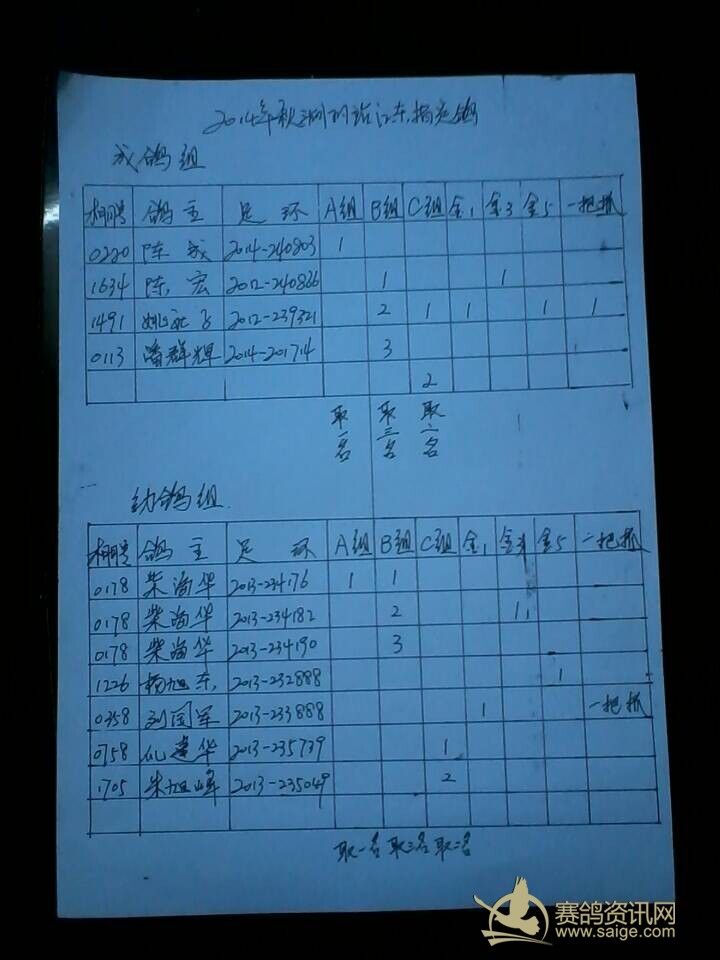 2014年秋 站江东指定鸽
成鸽组
棚号 鸽主 足环 A组 B组 C组 金1 金3 金5 一把抓
0220 陈成 2014-240803 1
1634 陈宏 2012-240826 1 1
1491 姚 飞 2012-239321 2 1 1 1 1
0113 潘群辉 2014-201714 3
2
取一名 取三名 取二名
幼鸽组
棚号 鸽主 足环 A组 B组 C组 金1 金3 金5 一把抓
0178 柴海华 2013-234176 1 1
0178 柴海华 2013-234182 2 1
0178 柴海华 2013-234190 3
1226 杨旭东 2013-232888 1
0358 刘国军 2013-233888 1 一把抓
0758 仇建华 2013-235739 1
1705 朱旭峰 2013-235049 2
取一名 取三名 取二名
赛鸽资讯网
www.saige.com